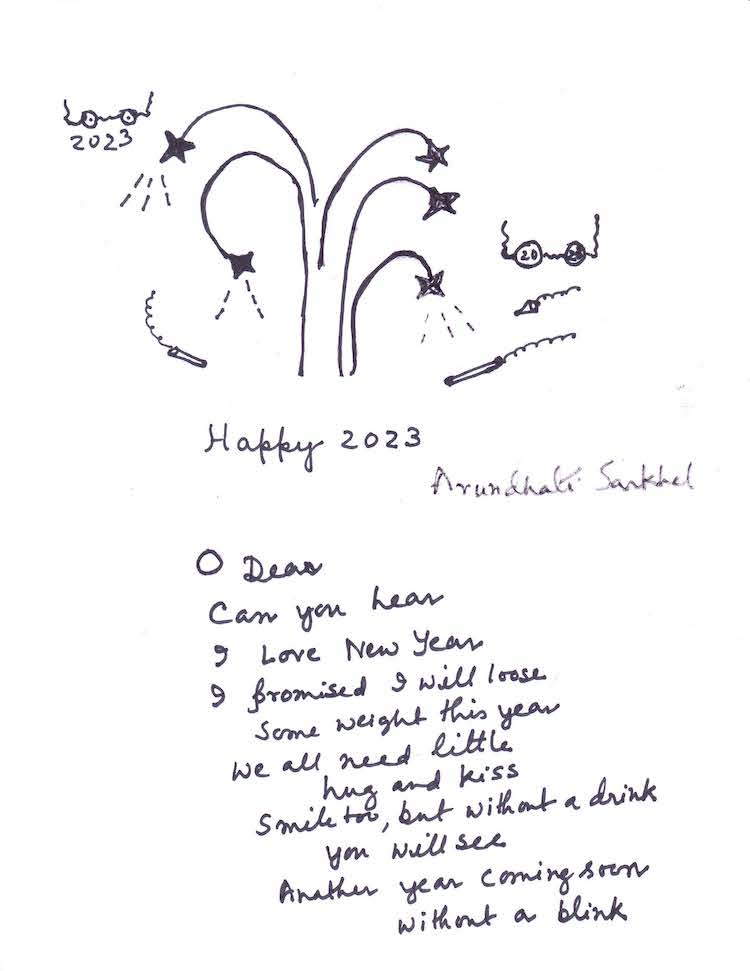 2023
20 23
Happy 2023
Arundhati Sarkhel
O Dear
Can you hear
I Love New Year
I promised I will loose
some weight this year
We all need little
hug and kiss
Smile too, but without a drink
you will see
Another year coming soon
without a blink